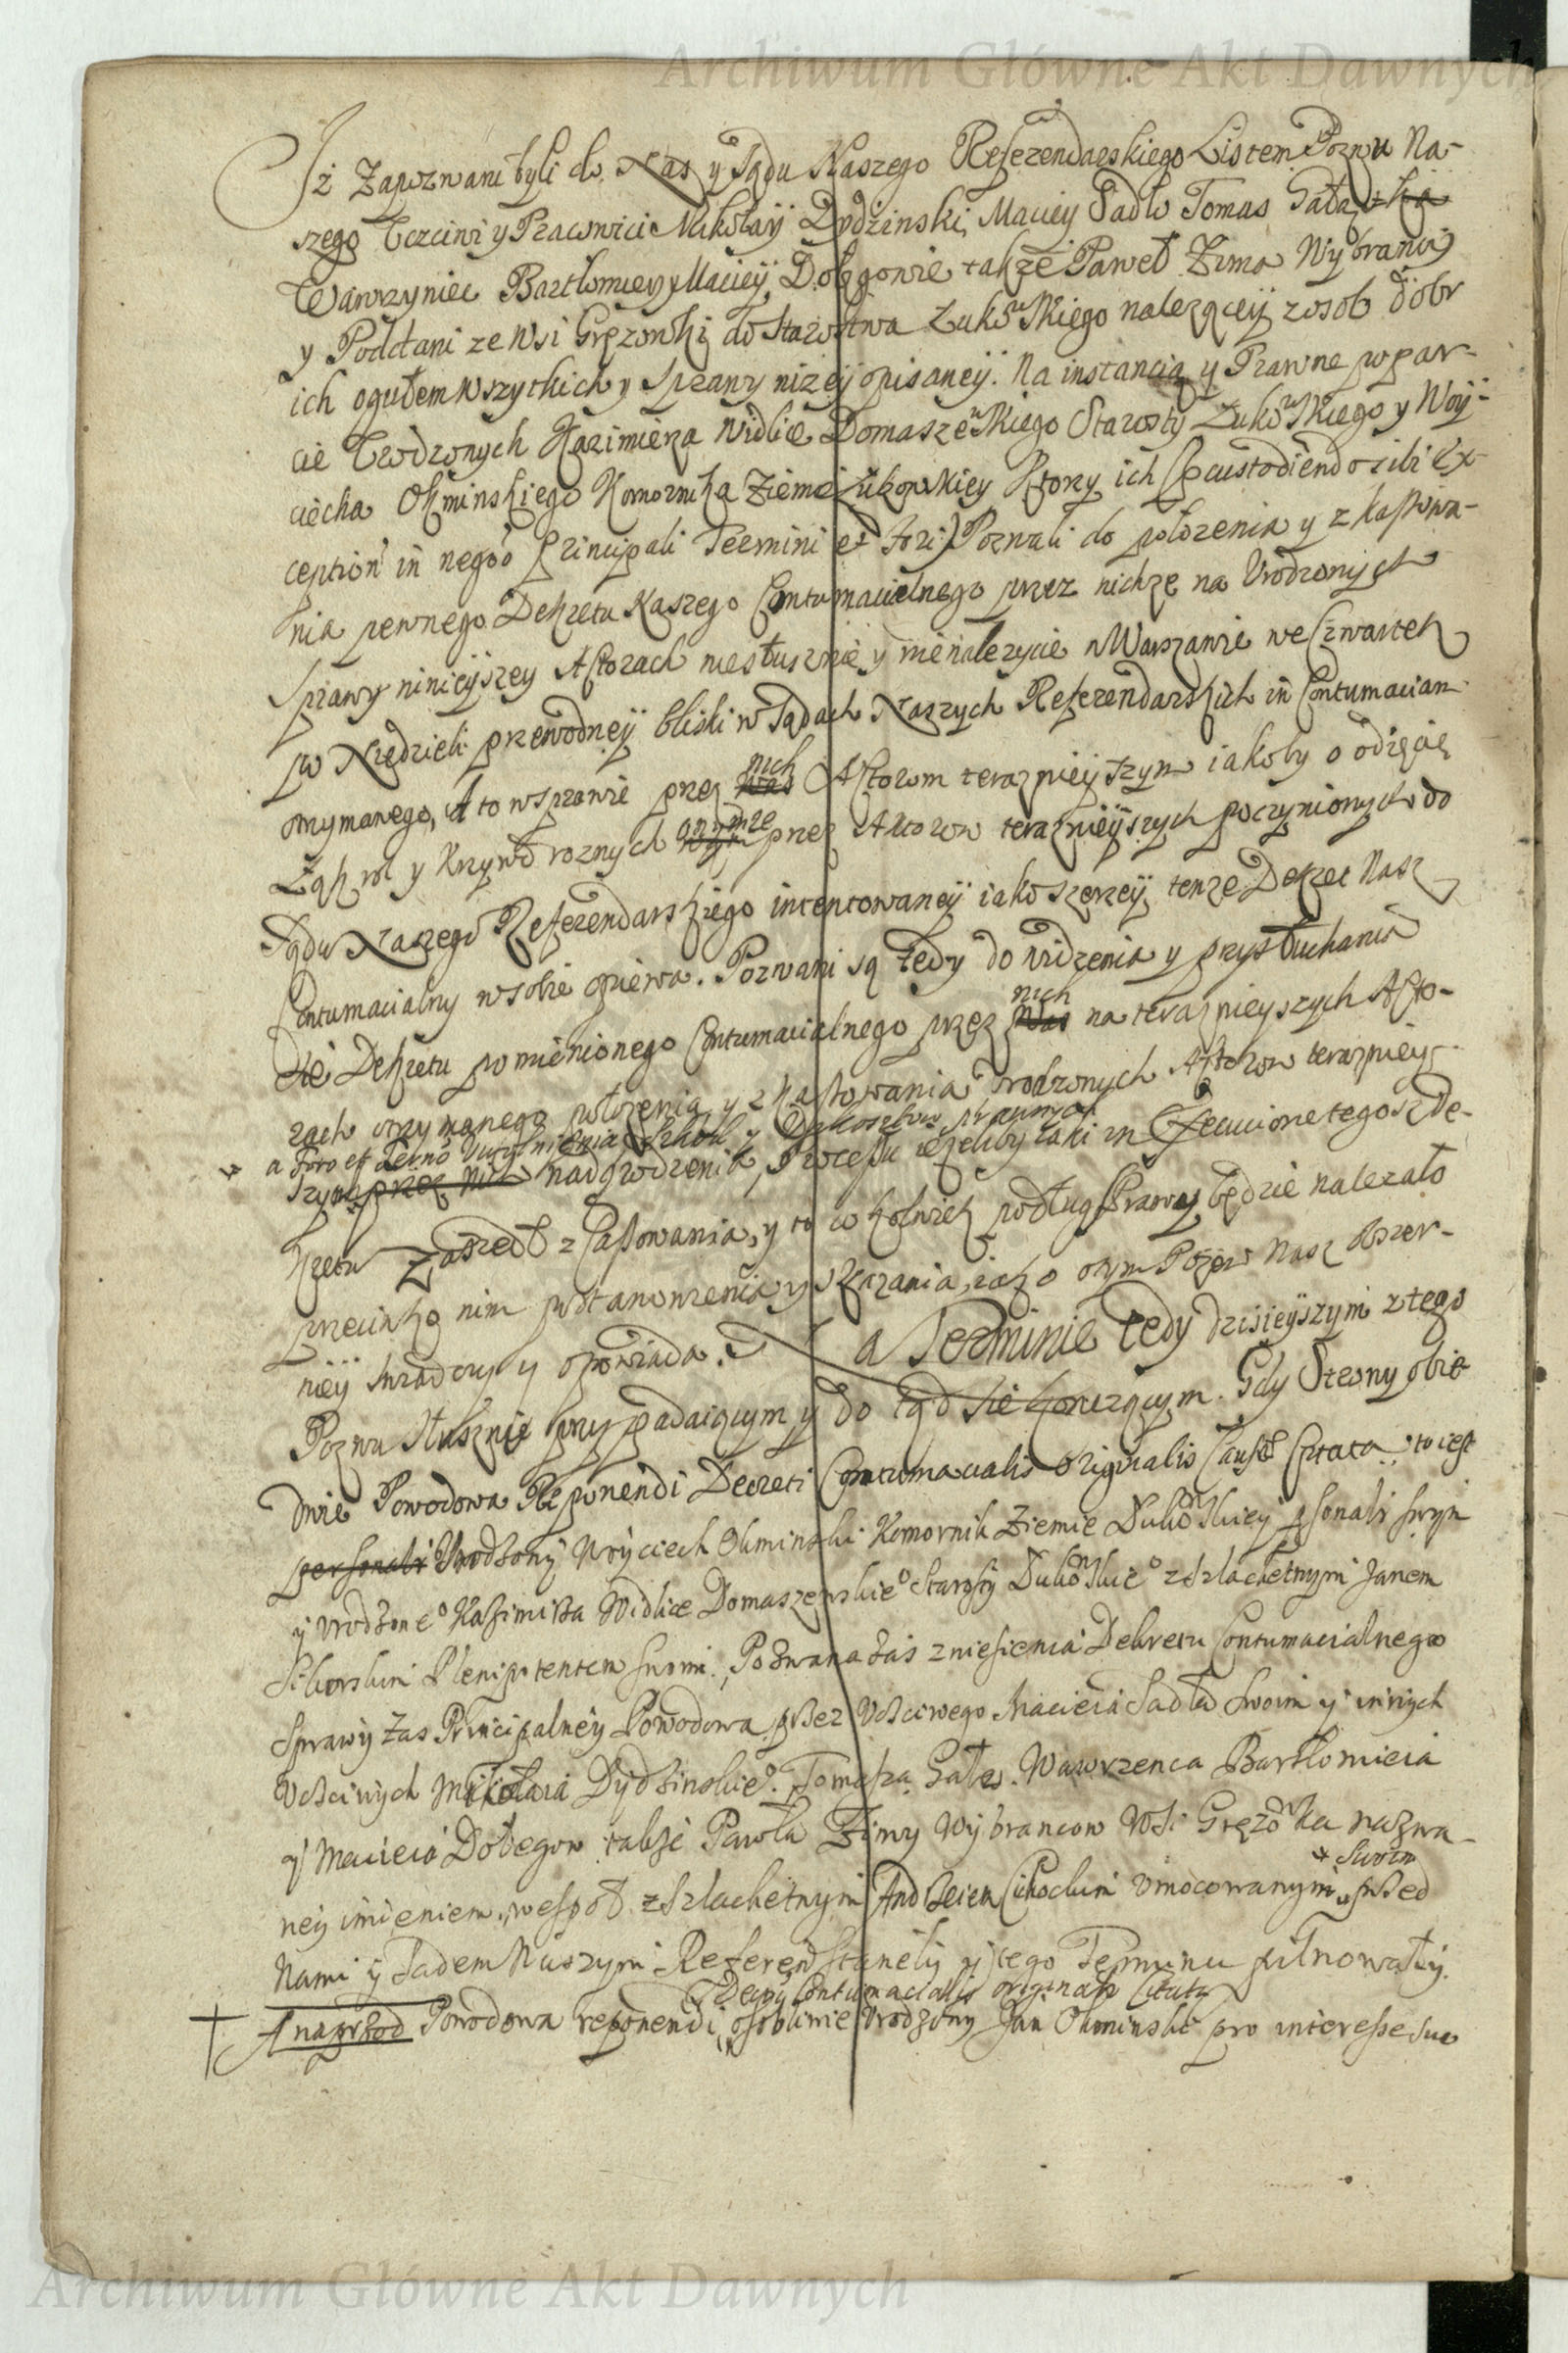 Archiwum Główne Akt Dawnych
Iż Zapozwani byli do Nas y Sądu Naszego Referendarskiego Listem Pozwu Na-
szego Uczciwi y Pracowici Mikołaÿ Dydzinski, Maciey Sadło Tomas Gałaz
Wawrzyniec Bartłomiey y Macieÿ Dołęgowie także Paweł Zima Wybrancÿ
y Poddani ze Wsi Gręzowki do Starostwa Łukowskiego nalezącey z osob dobr
ich ogułem wszytkich y Sprawy nizeÿ opisaneÿ. Na instancią y Prawne popar-
cie Urodzonych Kazimierza Widlice Domaszewskiego Starosty Łukowskiego y Woÿ-
ciecha Okminskiego Komornika Ziemie Łukowskiey Ktorzy ich (custodiendo sibi Ex-
ception in negoo Principali Termini et Fori) Pozwali do połozenia y zkassowa-
nia pewnego Dekretu Naszego Contumacielnego przez nichze na Urodzonych
Sprawy ninieÿszey Aktorach niesłusznie y nienalezycie w Warszawie we Czwartek
po Niedzieli przewodneÿ bliski w Sądach Naszych Referendarskich in Contumaciam
otrzymanego, A to w sprawie przez nich Aktorom terazniejszym iakoby o odięcie
Łąk, rol y Krzywd roznych przez Aktorow teraznieÿszych poczynionych do
Sądu Naszego Referendarskiego intentowaneÿ iako szerzeÿ tenze Dekret Nasz
Contumacialny w sobie opiewa. Pozwani są Tedy do widzenia y przysłuchania
sie Dekretu pomienionego Contumacialnego przez nich na terazniejszych Akto-
rach otrzymanego połozenia y zkassowania Urodzonych Aktorow terazniey-
a Foro et Termo Uwolnienia Szkod y Expkosztow prawnych
szych przez nich nadgrodzenia, Processu ieżeliby iaki in Executione tegosz De-
kretu zaszedł zCassowania, y to co kolwiek podług Prawa będzie nalezało
przeciwko nim postanowienia y skazania, iako otym Pozew Nasz obszer-
nieÿ swiadczy y opowiada. Na Terminie tedy dzisieÿszym z tego
Pozwu Słusznie przypadaiącym y do tąd sie toczącym. Gdy Strony obie
dwie Powodowa Reponendi Decreti Contumacialis Originalis Causæ Citata: to iest
personalr Urodzony Woyciech Okminski Komornik Ziemie Łukowskiey psonalr swym
y Urodzone° Kazimirza Widlice Domaszewskie° Starosty Łukowskie° z Szlachetnym Janem
Siborskim Plenipotentem swoim, Pozwana zas zniesienia Dekretu Contumacialnego
Sprawy zas Principalney Powodowa przez Uczciwego Macieia Sadła swoim y innych
Uczciwych Mikołaia Dydzinskie°. Tomasza Gałąz. Wawrzenca Bartłomieia
y Macieia Dołegow takze Pawła Zimy Wybrancow Wsi Gręzowka nazwa-
ney imieniem, wespoł z Szlachetnym Andrzeiem Cichockim Umocowanym swoim przed
Nami y Sądem Naszym Referen Staneły y tego Terminu pilnowały.
Decry Contumacialis originalr Citata
A naprzod Powodowa reponendi, osobliwie Urodzony Jan Okminski pro interesse suo
Archiwum Główne Akt Dawnych